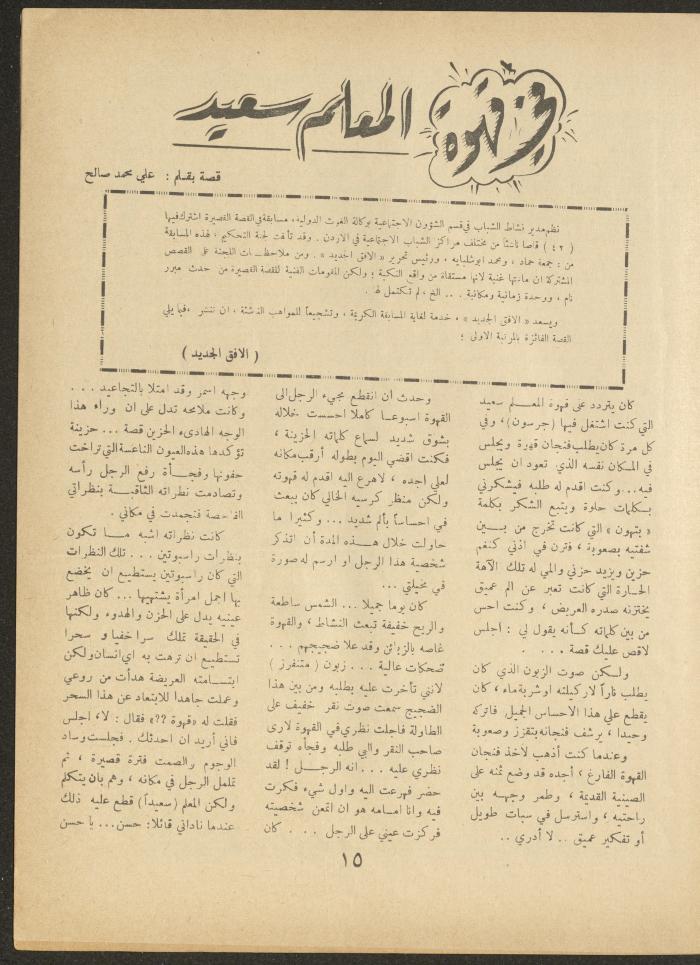 في قهوة المعلم سعيد
قصة بقلم : علي محمد صالح
نظم مدير نشاط الشباب في قسم الشؤون الاجتماعية بوكالة الغوث الدولية ، مسابقة في القصة القصيرة اشترك فيها
( ٤٢ ) قاصا ناشئا من مختلف مراكز الشباب الاجتماعية في الاردن . وقد تألفت لجنة التحكيم ، لهذه المسابقة
من : جمعة حماد ، ومحمد ابو شلباية ، ورئيس تحرير « الافق الجديد » . ومن ملاحظات اللجنة على القصص
المشتركة ان مادتها غنية لانها مستقاة من واقع النكبة ؛ ولكن المقومات الفنية للقصة القصيرة من حدث مبرر
نام ، ووحدة زمانية ومكانية . . . الخ ، لم تكتمل لها .
ويسعد « الافق الجديد » ، خدمة لغاية المسابقة الكريمة ، وتشجيعاً للمواهب الناشئة ، ان تنشر ، فيما يلي
القصة الفائزة بالمرتبة الاولى ؛
( الافق الجديد )
كان يتردد على قهوة المعلم سعيد
التي كنت اشتغل فيها ( جرسون ) ، وفي
كل مرة كان يطلب فنجان قهوة ويجلس
في المكان نفسه الذي تعود ان يجلس
فيه...وكنت اقدم له طلبه فيشكرني
بكلمات حلوة ويتبع الشكر بكلمة
« يتهون » التي كانت تخرج من بين
شفتيه بصعوبة ، فترن في اذني كنغم
حزين ويزيد حزني والمي له تلك الآهة
الحارة التي كانت تعبر عن الم عميق
يختزنه صدره العريض ، وكنت احس
من بين كلماته كأنه يقول لي : اجلس
لاقص عليك قصة . . .
ولكن صوت الزبون الذي كان
يطلب ناراً لاركيلته او شربة ماء ، كان
يقطع علي هذا الاحساس الجميل فاتركه
وحيدا ، يرشف فنجانه بتقزز وصعوبة
وعندما كنت أذهب لآخذ فنجان
القهوة الفارغ ، أجده قد وضع ثمنه على
الصينية القديمة ، وطمر وجهه بين
راحتيه ، واسترسل في سبات طويل
أو تفكير عميق .. لا أدري ..
وحدث ان انقطع مجيء الرجل الى
القهوة اسبوعا كاملا احسست خلاله
بشوق شديد لسماع كلماته الحزينة ،
فكنت اقضي اليوم بطوله أرقب مكانه
لعلي اجده ، لاهرع اليه اقدم له قهوته
ولكن منظر كرسيه الخالي كان يبعث
في احساساً بألم شديد ... وكثيرا ما
حاولت خلال هذه المدة أن اتذكر
شخصية هذا الرجل او ارسم له صورة
في مخيلتي ...
كان يوما جميلا ... الشمس ساطعة
والريح خفيفة تبعث النشاط ، والقهوة
غاصه بالزبائن وقد علا ضجيجهم ...
ضحكات عالية ... زبون ( متنفرز )
لانني تأخرت عليه بطلبه ومن بين هذا
الضجيج سمعت صوت نقر خفيف على
الطاولة فاجلت نظري في القهوة لارى
صاحب النقر والبي طلبه وفجأه توقف
نظري عليه ... انه الرجل ! لقد
حضر فهرعت اليه واول شيء فكرت
فيه وانا امامه هو ان اتمعن شخصيته
فركزت عيني على الرجل ... كان
وجهه اسمر وقد امتلا بالتجاعيد ...
وكانت ملامحه تدل على ان وراء هذا
الوجه الهادىء الحزين قصة ... حزينة
تؤكدها هذه العيون الناعسة التي تراخت
جفونها وفجأة رفع الرجل رأسه
وتصادمت نظراته الثاقبة بنظراتي
الفاحصة فتجمدت في مكاني .
كانت نظراته اشبه ما تكون
بنظرات راسبوتين ... تلك النظرات
التي كان راسبوتين يستطيع ان يخضع
بها اجمل امرأة يشتهيها ... كان ظاهر
عينيه يدل على الحزن والهدوء ولكنها
في الحقيقة تملك سرا خفيا و سحرا
تستطيع ان ترهت به اي انسان ولكن
ابتسامته العريضة هدأت من روعي
وعملت جاهدا للابتعاد عن هذا السحر
فقلت له «قهوة ??» فقال : لا ، اجلس
فاني أريد ان احدثك . فجلست وساد
الوجوم والصمت فترة قصيرة ، ثم
تململ الرجل في مكانه ، وهم بأن يتكلم
ولكن المعلم (سعيداً) قطع عليه ذلك
عندما ناداني قائلا: حسن ... يا حسن
١٥